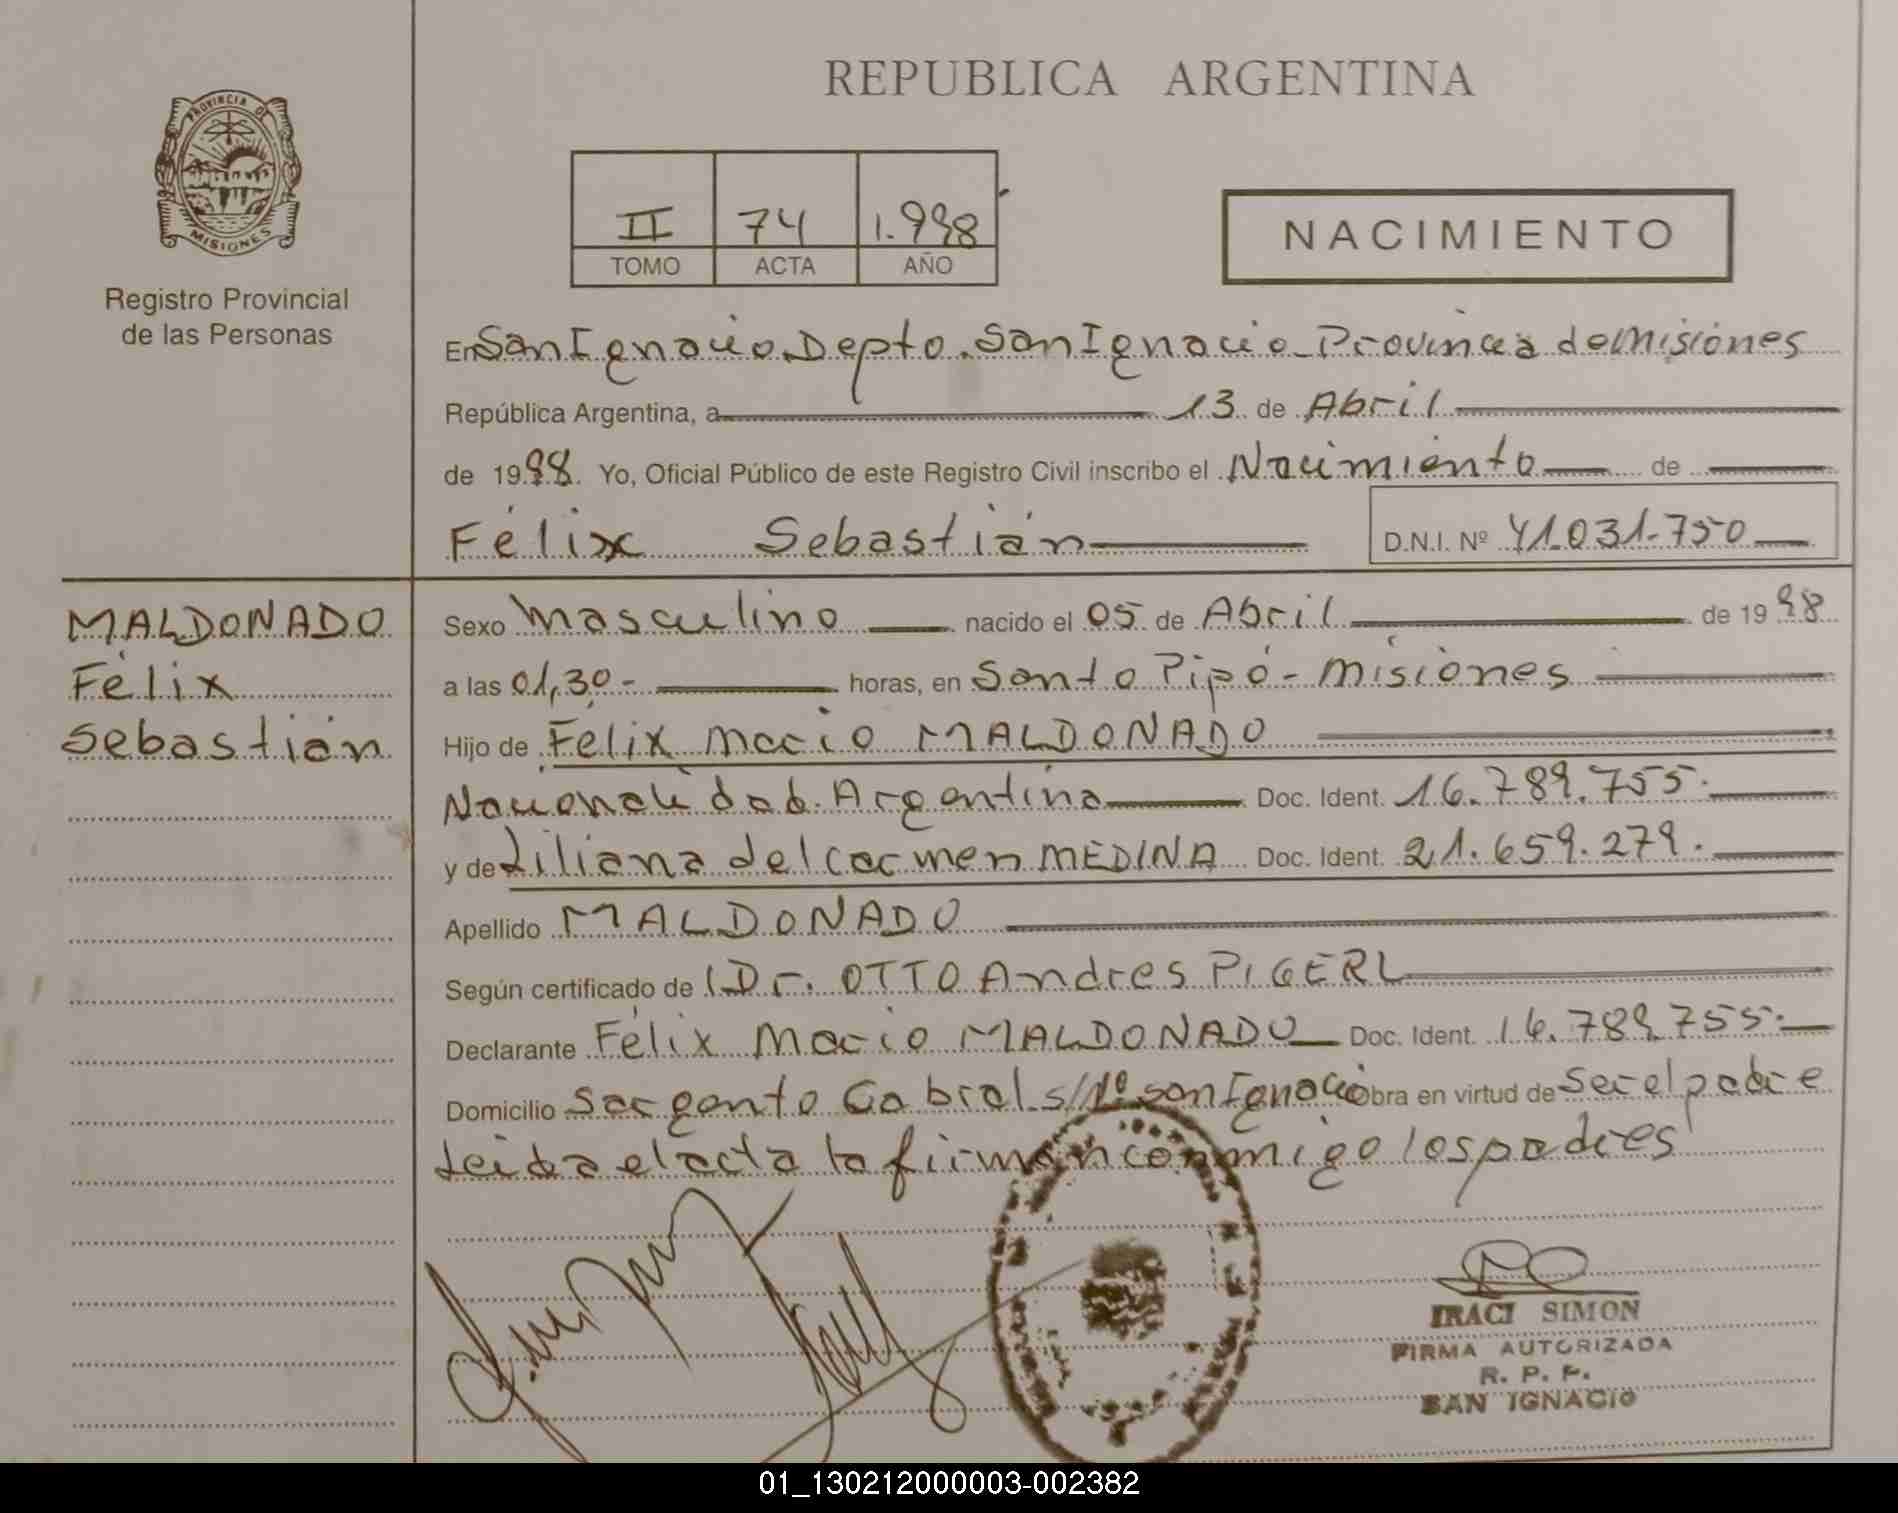 REPUBLICA ARGENTINA
PROVINCIA DE
MISIONES
Registro Provincial
de las Personas
II 74 1.998
TOMO ACTA AÑO
NACIMIENTO
En San Ignacio Depto. San Ignacio - Provincia de Misiones
República Argentina, a 13 de Abril
de 1998. Yo, Oficial Público de este Registro Civil inscribo el Nacimiento de
Félix Sebastián D.N.I. Nº 41.031.750
MALDONADO
Félix
Sebastián
Sexo Masculino nacido el 05 de Abril de 1998
a las 01,30- horas, en Santo Pipó - Misiones
Hijo de Félix Mario MALDONADO
Nacionalidad Argentina Doc. Ident. 16.789.755.
y de Liliana del Carmen MEDINA Doc. Ident. 21.659.279.
Apellido MALDONADO
Según certificado de Dr. OTTO Andres PIGERL
Declarante Félix Mario MALDONADO Doc. Ident. 16.789.755.
Domicilio Sargento Cabral s/Nº San Ignacio obra en virtud de Ser el padre
Leida el acta la firman conmigo los padres
IRACI SIMON
FIRMA AUTORIZADA
R. P. P.
SAN IGNACIO
01_130212000003-002382